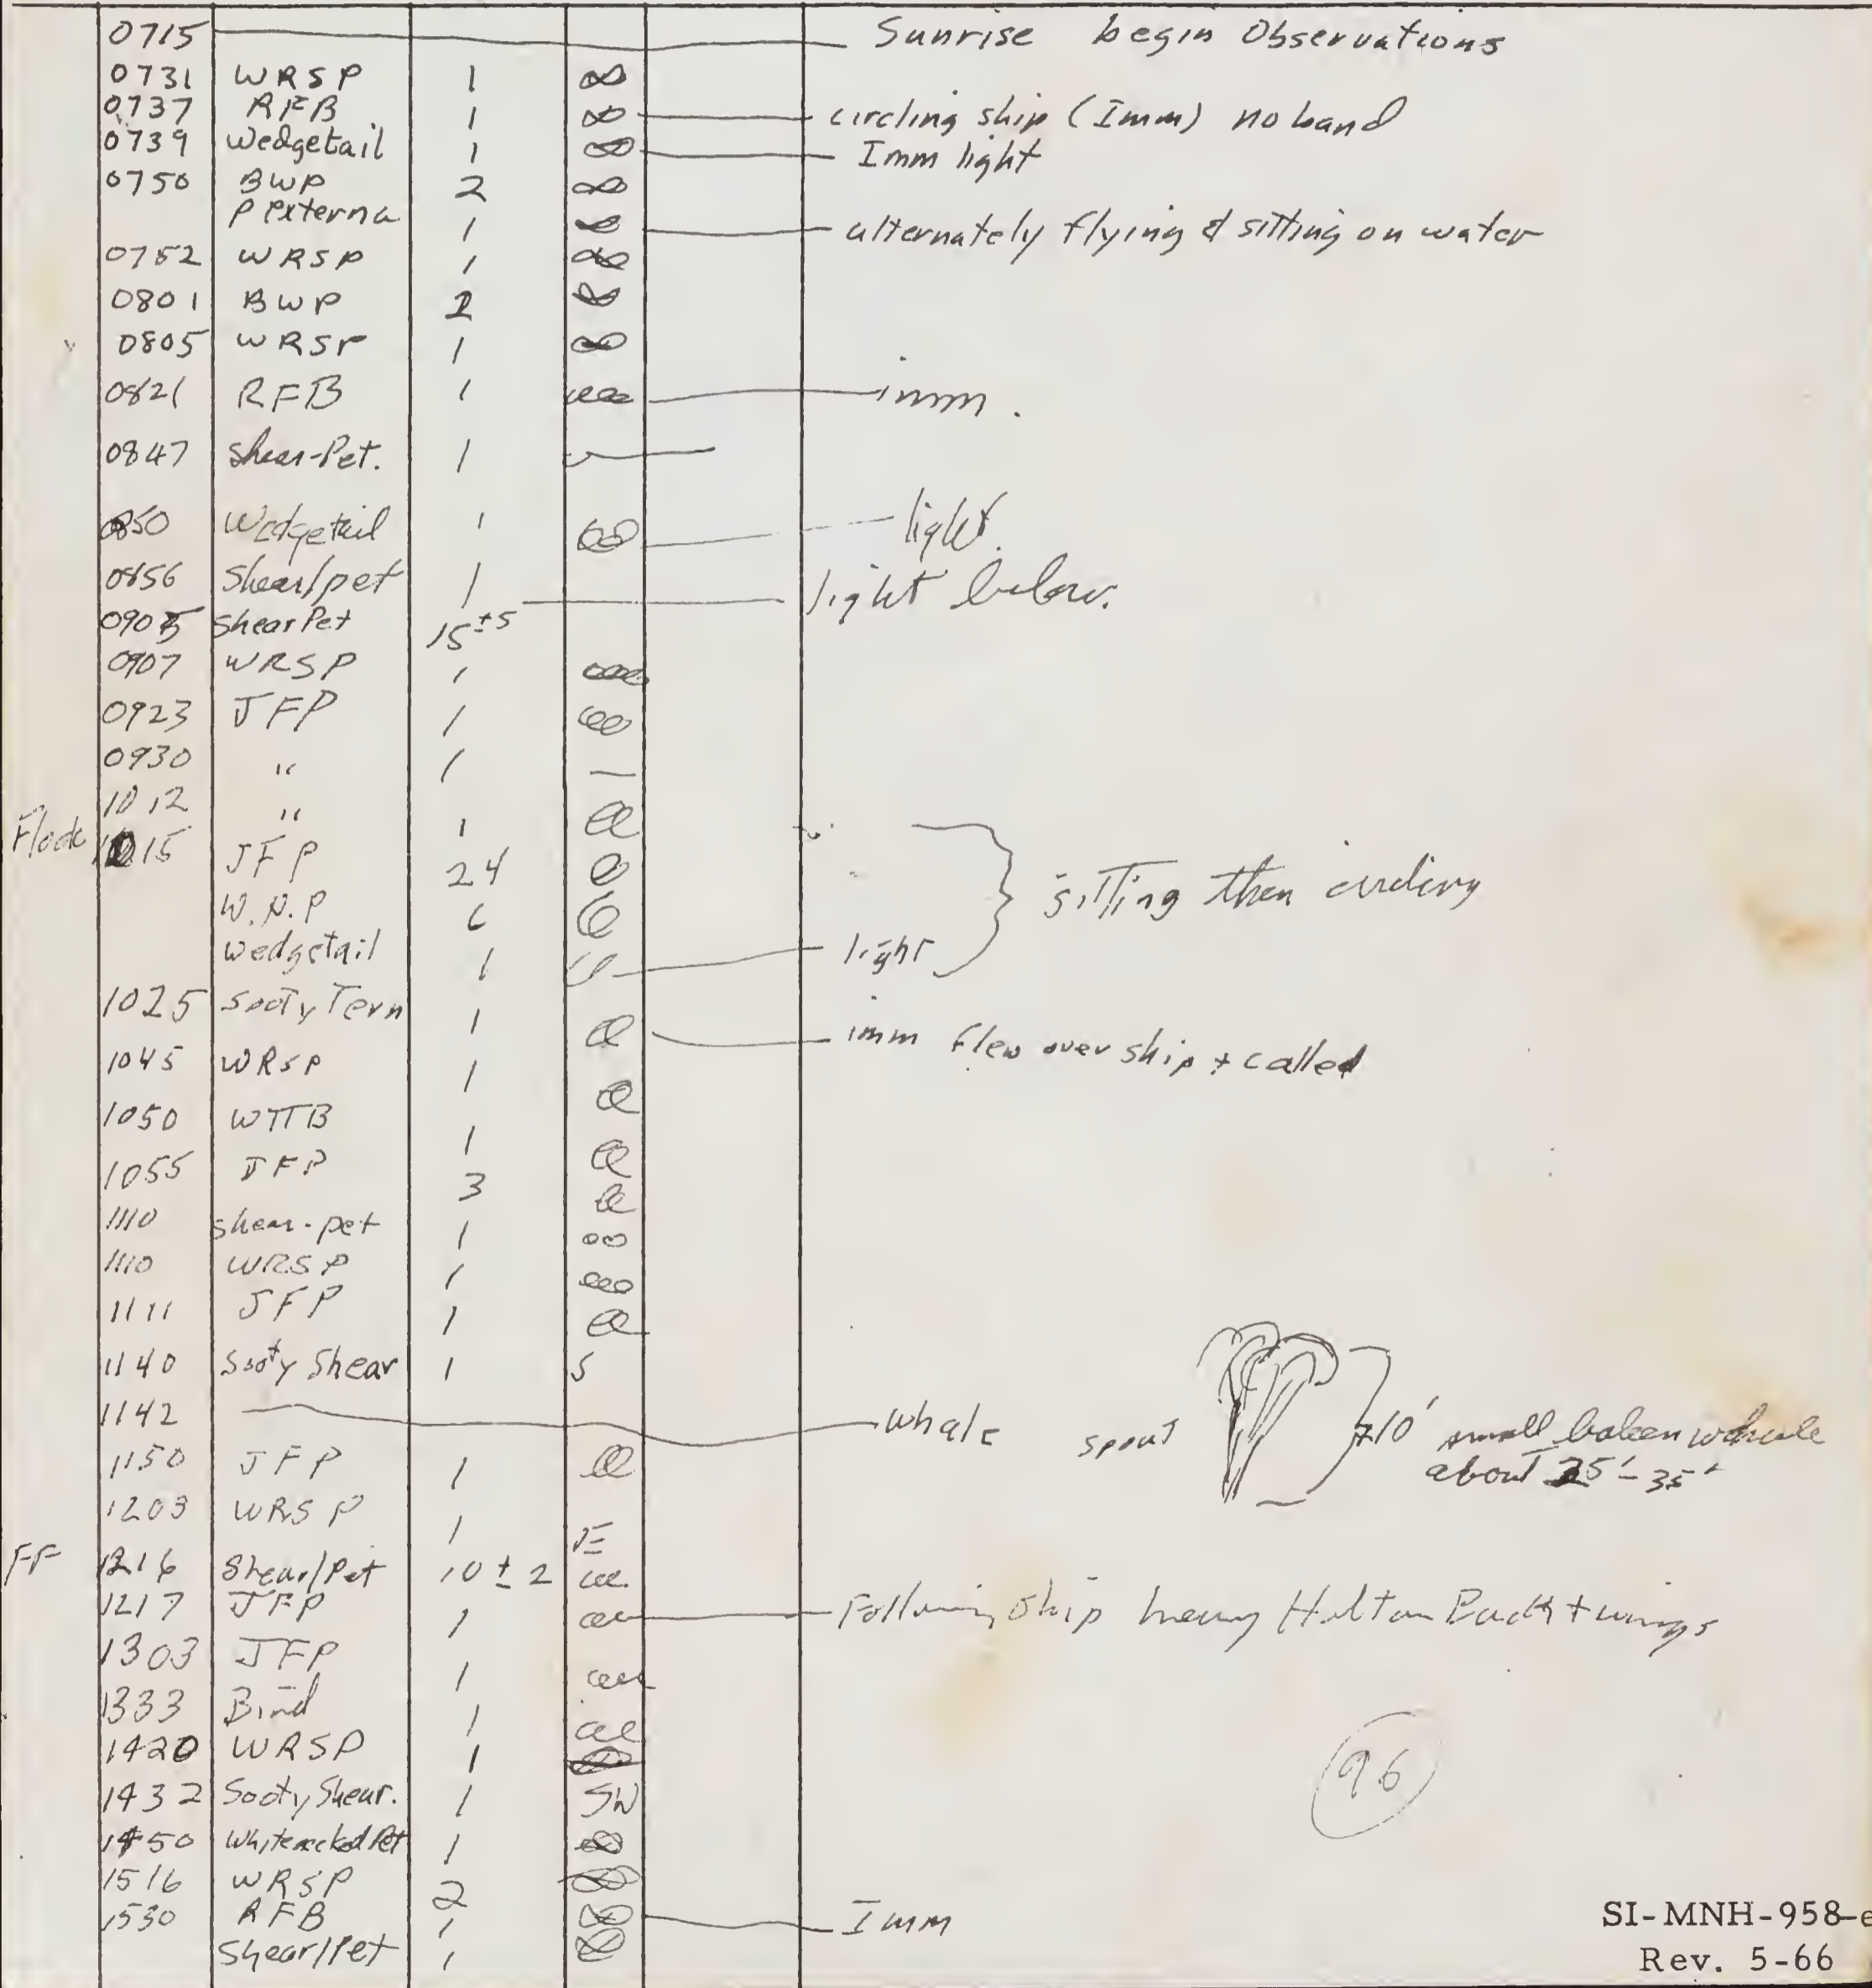 0715 Sunrise begin Observations
0731 WRSP 1 ∞
0737 RFB 1 ∞ circling ship (Imm) no band
0739 Wedgetail 1 ∞ Imm light
0750 BWP 2 ∞
P externa 1 ∞ alternately flying & sitting on water
0752 WRSP 1 ∞
0801 BWP 2 ∞
0805 WRSP 1 ∞
0821 RFB 1 imm.
0847 Shear-Pet. 1
0850 Wedgetail 1 ∞ light
0856 Shear/pet 1 light below.
0905 Shear Pet 15 ±5
0907 WRSP 1
0923 JFP 1
0930 " 1 —
1012 " 1
Flock 1015 JFP 24
W.N.P 6 sitting then circling
Wedgetail 1 light
1025 Sooty Tern 1 imm flew over ship + called
1045 WRSP 1
1050 WTTB 1
1055 JFP 3
1110 shear-pet 1
1110 WRSP 1
1111 JFP 1
1140 Sooty Shear 1 S
1142 whale spout 10' small baleen whale
about 25'-35'
1150 JFP 1
1203 WRSP 1
FF 1216 Shear/Pet 10 ± 2
1217 JFP 1 Following Ship heavy Back + wings
1303 JFP 1
1333 Bird 1
1420 WRSP 1 ∞
1432 Sooty Shear. 1 SW
1450 Whitenecked Pet 1 ∞
1516 WRSP 2 ∞
1530 RFB 1 ∞ Imm
Shear/Pet 1 ∞
96
SI-MNH-958-e
Rev. 5-66